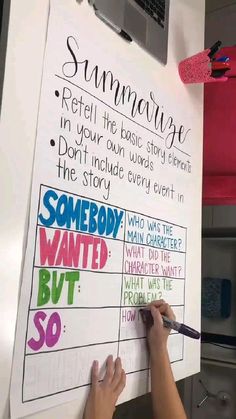 Summarize
• Retell the basic story elements
in your own words
• Dont include every event in
the story
SOMEBODY: WHO WAS THE
MAIN CHARACTER?
WANTED: WHAT DID THE
CHARACTER WANT?
BUT: WHAT WAS THE
PROBLEM?
SO: HOW